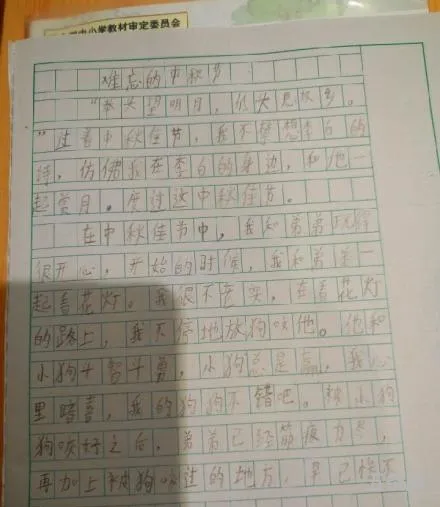 中小学教材审定委员会
难忘的中秋节
“举头望明月，低头思故乡。
”过着中秋佳节，我不禁想李白的
诗，仿佛我在李白的身边，和他一
起赏月。度过这中秋佳节。
在中秋佳节中，我和弟弟玩得
很开心，开始的时候，我和弟弟一
起看花灯。我很不老实，在看花灯
的路上，我不停地放狗咬他。他和
小狗斗智斗勇，小狗总是赢，我心
里暗喜，我的狗狗不错吧。被小狗
狗咬好之后，弟弟已经筋疲力尽，
再加上被狗咬过的地方，早已惨不